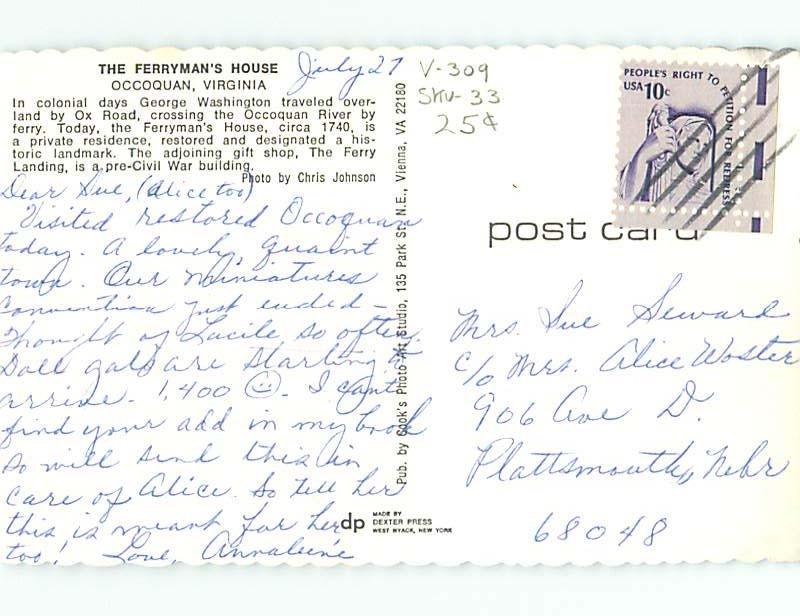 THE FERRYMAN'S HOUSE
OCCOQUAN, VIRGINIA
In colonial days George Washington traveled over-
land by Ox Road, crossing the Occoquan River by
ferry. Today, the Ferryman's House, circa 1740, is
a private residence, restored and designated a his-
toric landmark. The adjoining gift shop, The Ferry
Landing, is a pre-Civil War building.
Photo by Chris Johnson
July 27
Dear Sue, (Alice too)
Visited restored Occoquan
today. A lovely, quaint
town. Our Miniatures
Convention just ended –
Thought of Lucile so often.
Doll gals are starting to
arrive. 1,400 ☺. I can't
find your add in my book
so will send this in
care of Alice. So tell her
this is meant for her
too! Love, Annaleene
Pub. by Cook's Photo-Art Studio, 135 Park St. N.E., Vienna, VA 22180
dp MADE BY
DEXTER PRESS
WEST NYACK, NEW YORK
V-309
SKU-33
25¢
PEOPLE'S RIGHT TO PETITION FOR REDRESS
USA 10c
post card
Mrs. Sue Seward
c/o Mrs. Alice Woster
906 Ave D.
Plattsmouth, Nebr
68048